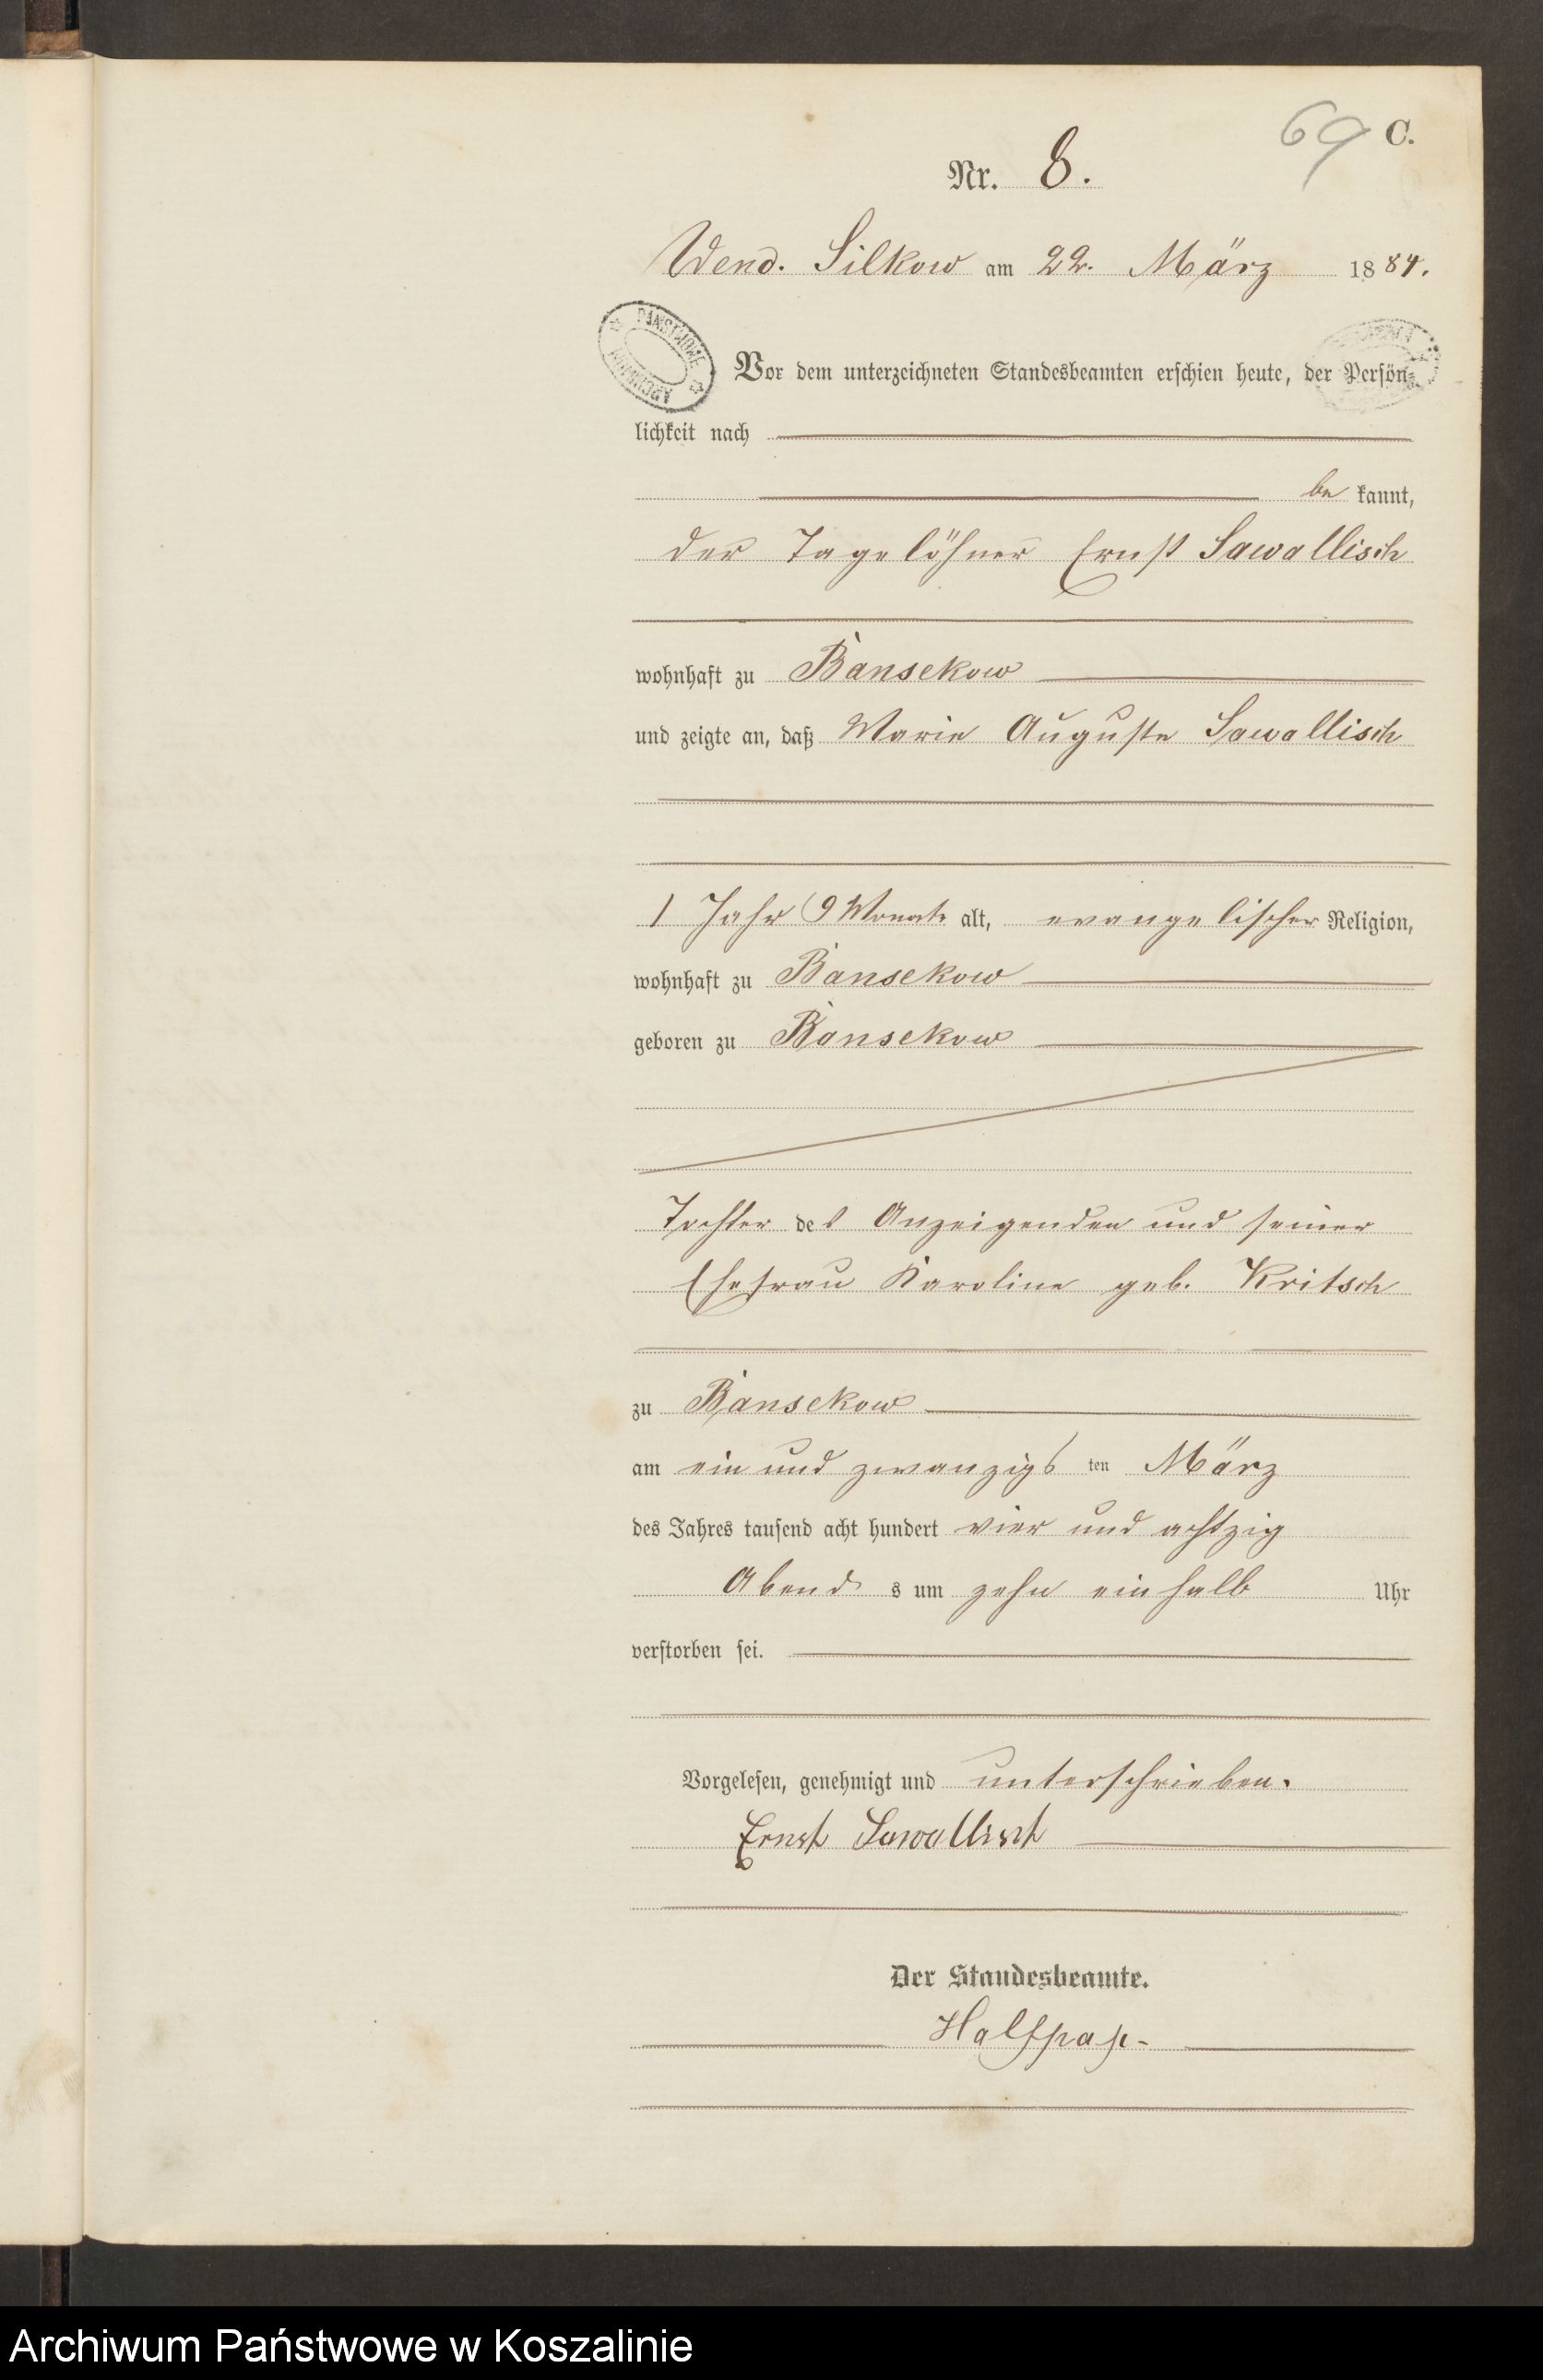 69 C.
Nr. 8.
Wend. Silkow am 22. März 1884.
PAŃSTWOWE ARCHIWUM
Vor dem unterzeichneten Standesbeamten erschien heute, der Persön-
lichkeit nach
be kannt,
der Tagelöhner Ernst Sawallisch
wohnhaft zu Bansekow
und zeigte an, daß Marie Auguste Sawallisch
1 Jahr 9 Monate alt, evangelischer Religion,
wohnhaft zu Bansekow
geboren zu Bansekow
Tochter des Anzeigenden und seiner
Ehefrau Karoline geb. Kritsch
zu Bansekow
am ein und zwanzigs ten März
des Jahres tausend acht hundert vier und achtzig
Abend s um zehn einhalb Uhr
verstorben sei.
Vorgelesen, genehmigt und unterschrieben.
Ernst Sawallisch
Der Standesbeamte.
Halfpap.
Archiwum Państwowe w Koszalinie